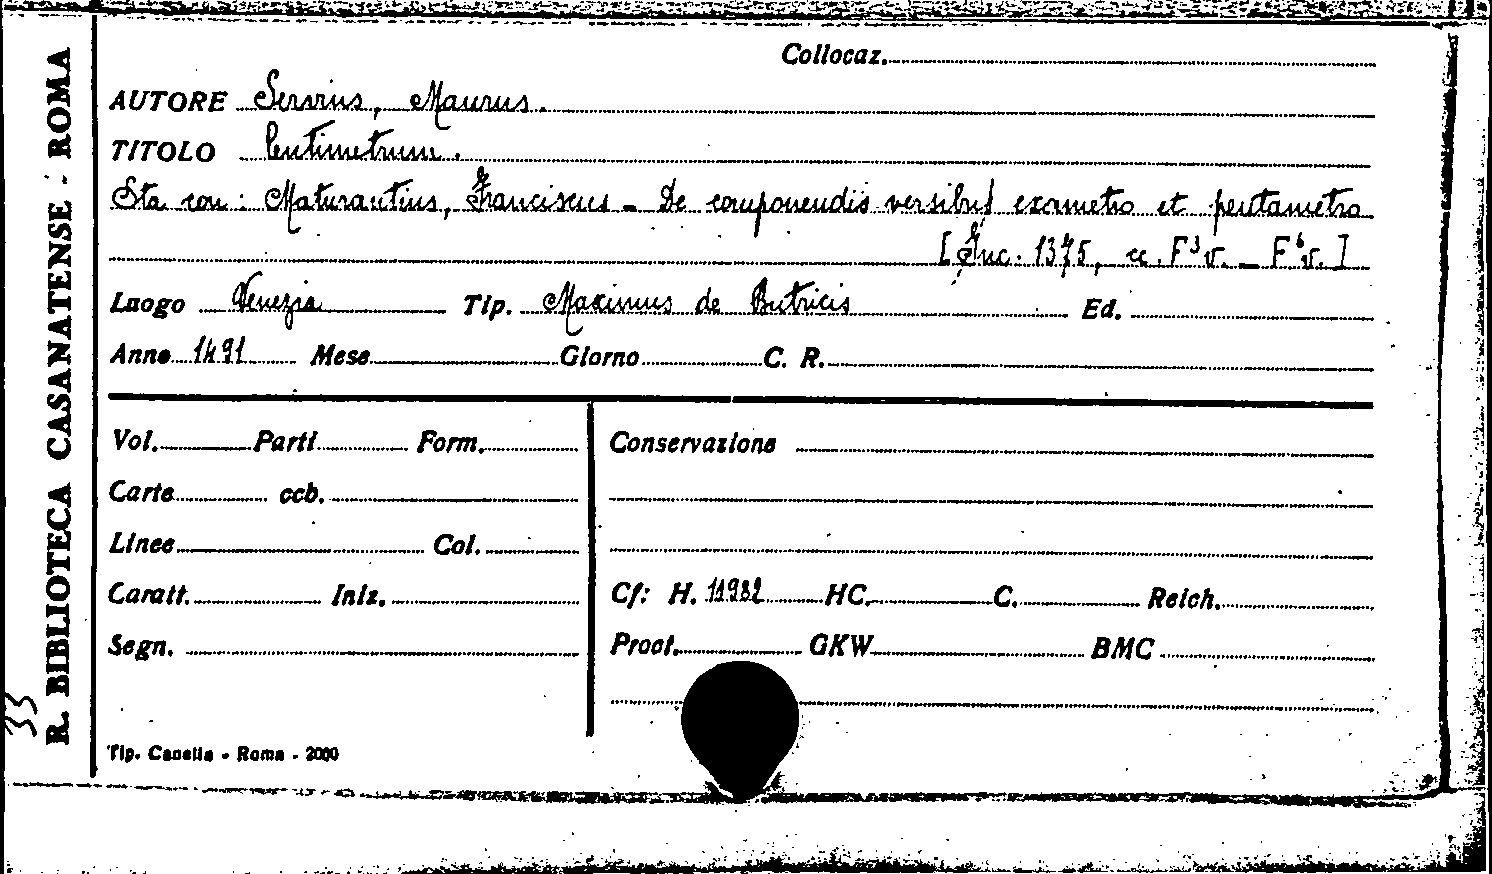 R. BIBLIOTECA CASANATENSE - ROMA
33
Collocaz.
AUTORE Servius, Maurus.
TITOLO Centimetrum.
Sta con: Maturantius, Franciscus - De componendis versibus exametro et pentametro
[Inc. 1375, cc. F³v. - F⁶v.]
Luogo Venezia Tip. Maximus de Butricis Ed.
Anno 1491 Mese Giorno C. R.
Vol. Parti Form. Conservazione
Carte ccb.
Linee Col.
Caratt. Iniz. Cf: H. 11982 HC. C. Reich.
Segn. Proct. GKW BMC
Tip. Canella - Roma - 2000